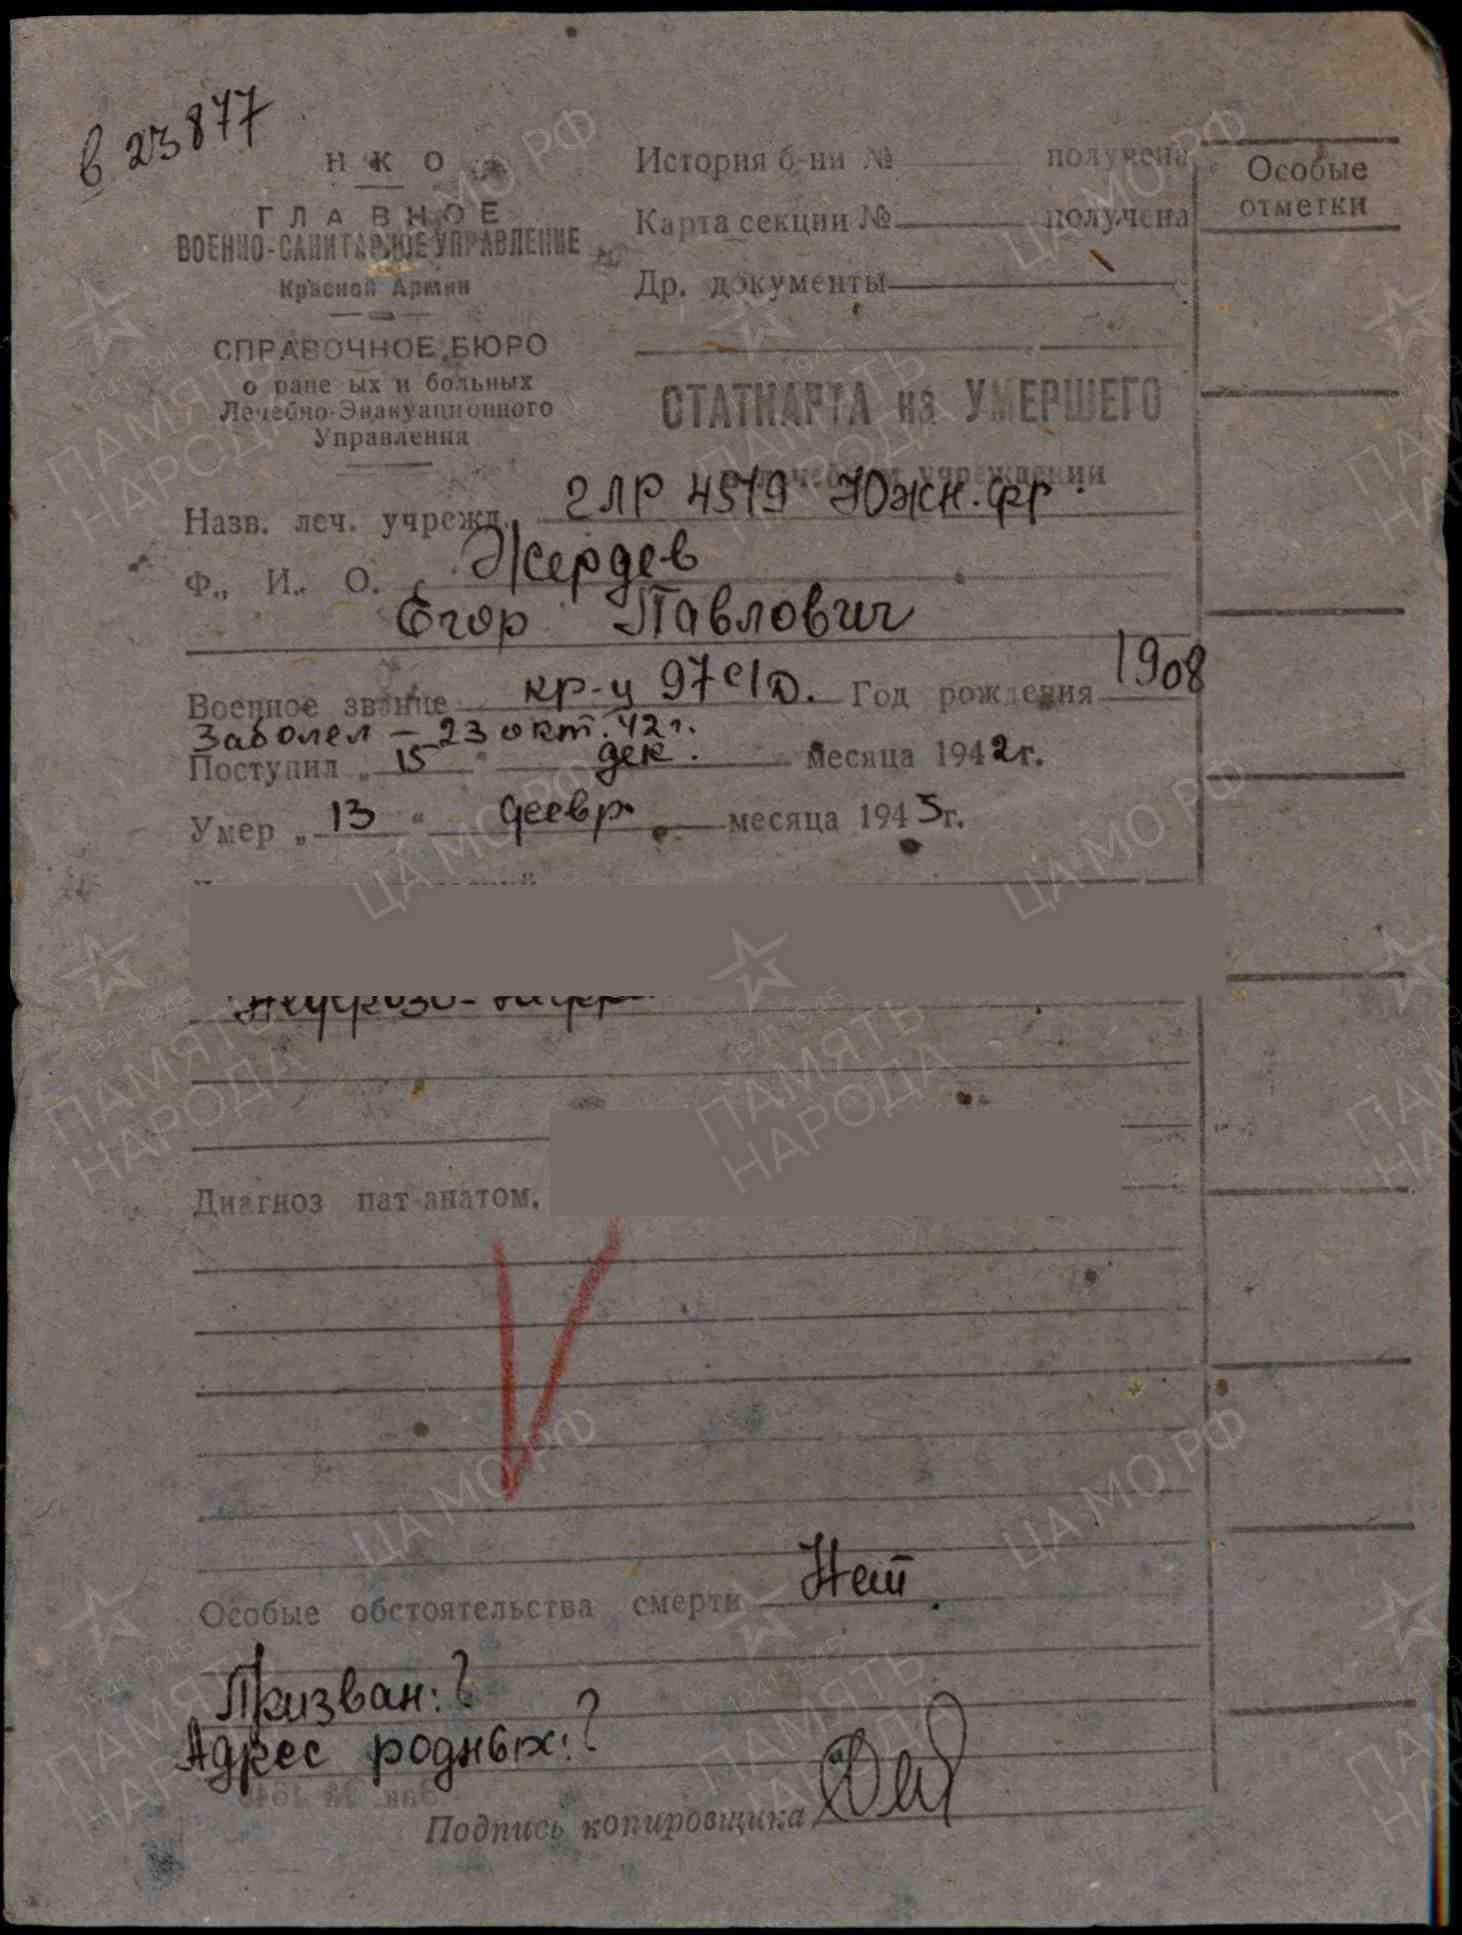 в 23877
НКО
ГЛАВНОЕ
ВОЕННО-САНИТАРНОЕ УПРАВЛЕНИЕ
Красной Армии
СПРАВОЧНОЕ БЮРО
о ране ых и больных
Лечебно-Эвакуационного
Управления
История б-ни № получена
Карта секции № получена
Др. документы
Особые
отметки
СТАТКАРТА на УМЕРШЕГО
в лечебном учреждении
Назв. леч. учрежд. ГЛР 4519 Южн. фр.
Ф., И., О. Жердев
Егор Павлович
Военное звание кр-ц 97 с/д. Год рождения 1908
Заболел - 23 окт. 42 г.
Поступил „15" дек. месяца 1942 г.
Умер „13" февр. месяца 1943 г.
Диагноз пат-анатом.
Особые обстоятельства смерти Нет.
Призван: ?
Адрес родных: ?
Подпись копировщика
ЦА МО РФ
ПАМЯТЬ
НАРОДА
1941-1945